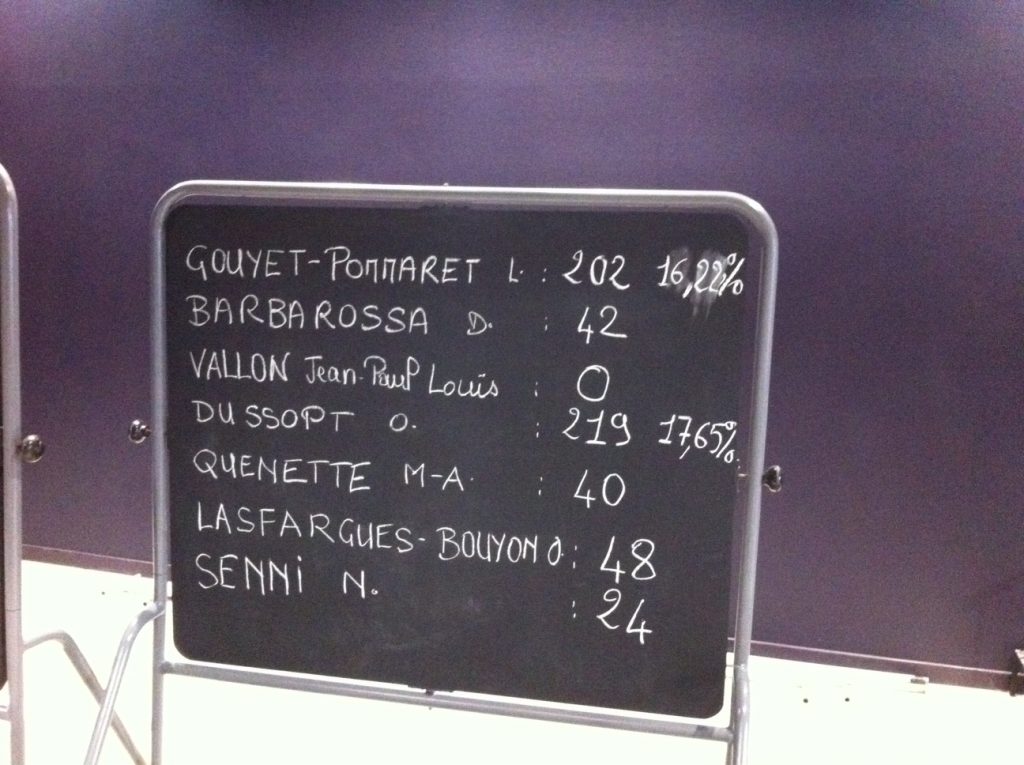 GOUYET-POMMARET L. : 202 16,22%
BARBAROSSA D. : 42
VALLON Jean-Paul Louis : 0
DUSSOPT O. : 219 17,65%
QUENETTE M-A. : 40
LASFARGUES-BOUYON O : 48
SENNI N. : 24